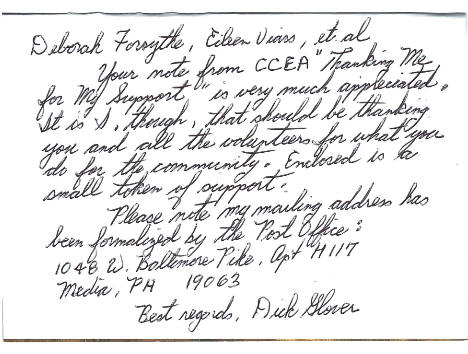 Deborah Forsythe, Eileen Viars, et al
Your note from CCEA "Thanking Me
for My Support" is very much appreciated.
It is I, though, that should be thanking
you and all the volunteers for what you
do for the community. Enclosed is a
small token of support.
Please note my mailing address has
been formalized by the Post Office:
1048 W. Baltimore Pike, Apt H117
Media, PA 19063
Best regards, Dick Glover